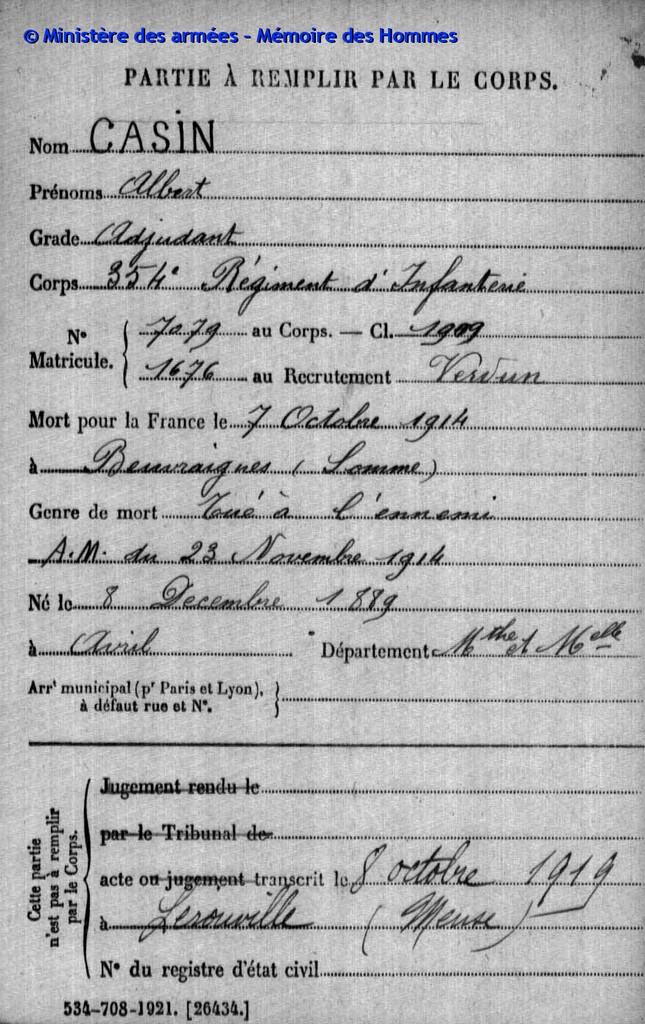 © Ministère des armées - Mémoire des Hommes
PARTIE À REMPLIR PAR LE CORPS.
Nom CASIN
Prénoms Albert
Grade Adjudant
Corps 354e Régiment d'Infanterie
N° Matricule. { 7079 au Corps. — Cl. 1909
1676 au Recrutement Verdun
Mort pour la France le 7 Octobre 1914
à Beuvraignes (Somme)
Genre de mort Tué à l'ennemi
A.M. du 23 Novembre 1914
Né le 8 Decembre 1889
à Avril Département Mthe et Melle
Arrt municipal (pr Paris et Lyon), }
à défaut rue et N°.
Cette partie
n'est pas à remplir
par le Corps.
Jugement rendu le
par le Tribunal de
acte ou jugement transcrit le 8 octobre 1919
à Lerouville (Meuse)
N° du registre d'état civil
534-708-1921. [26434.]